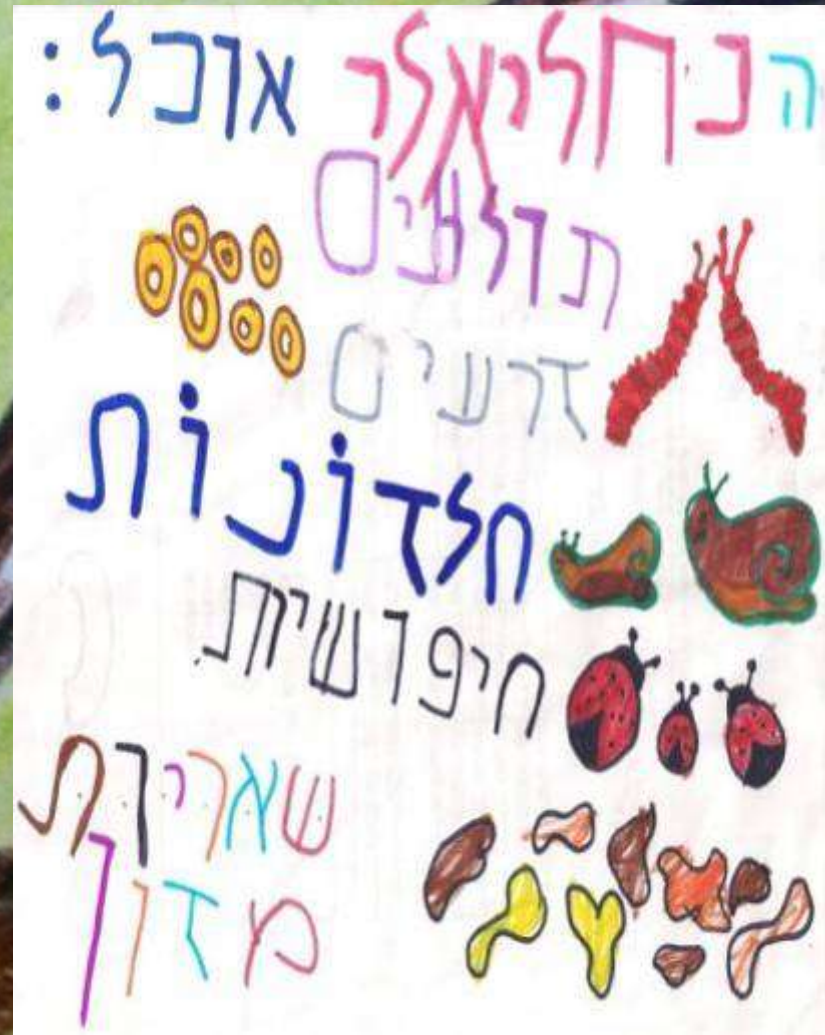 הנחליאלי אוכל:
תולעים
זרעים
חלזוֹנוֹת
חיפושיות
שאריות
מזון